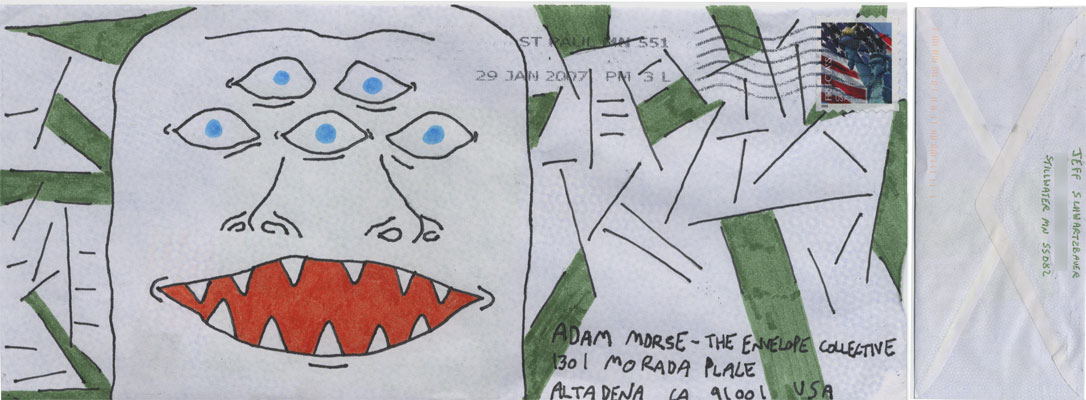 ST PAUL MN 551
29 JAN 2007 PM 3 L
USA
ADAM MORSE - THE ENVELOPE COLLECTIVE
1301 MORADA PLACE
ALTADENA CA 91001 USA
JEFF SCHWARTZBAUER
STILLWATER MN 55082